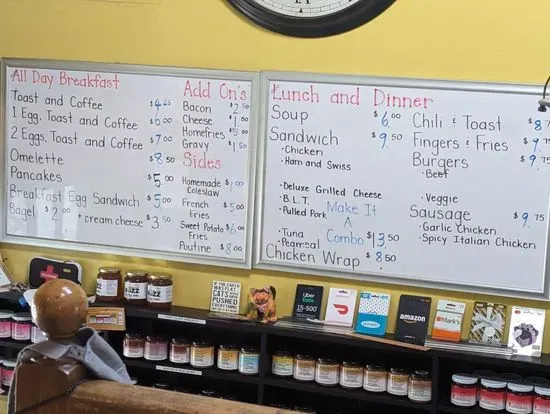 All Day Breakfast
Toast and Coffee $4.25
1 Egg, Toast and Coffee $6.00
2 Eggs, Toast and Coffee $7.00
Omelette $8.50
Pancakes $5.00
Breakfast Egg Sandwich $5.00
Bagel $2.00 + cream cheese $3.50
Add On's
Bacon $2.50
Cheese $1.50
Homefries $5.00
Gravy $1.50
Sides
Homemade $1.00
Coleslaw
French $5.00
Fries
Sweet Potato $6.00
Fries
Poutine $8.00
Lunch and Dinner
Soup $6.00
Sandwich $9.50
• Chicken
• Ham and Swiss
• Deluxe Grilled Cheese
• B.L.T.
• Pulled Pork
• Tuna
• Peameal
Make It
A
Combo $13.50
Chicken Wrap $8.50
Chili & Toast $8.7
Fingers & Fries $9.75
Burgers $9.75
• Beef
• Veggie
Sausage $9.75
• Garlic Chicken
• Spicy Italian Chicken
IF THE EARTH
WAS FLAT
CATS WOULD HAVE
PUSHED
EVERYTHING OFF IT
Uber
Eats
15-500
DOORDASH
amazon
Mark's